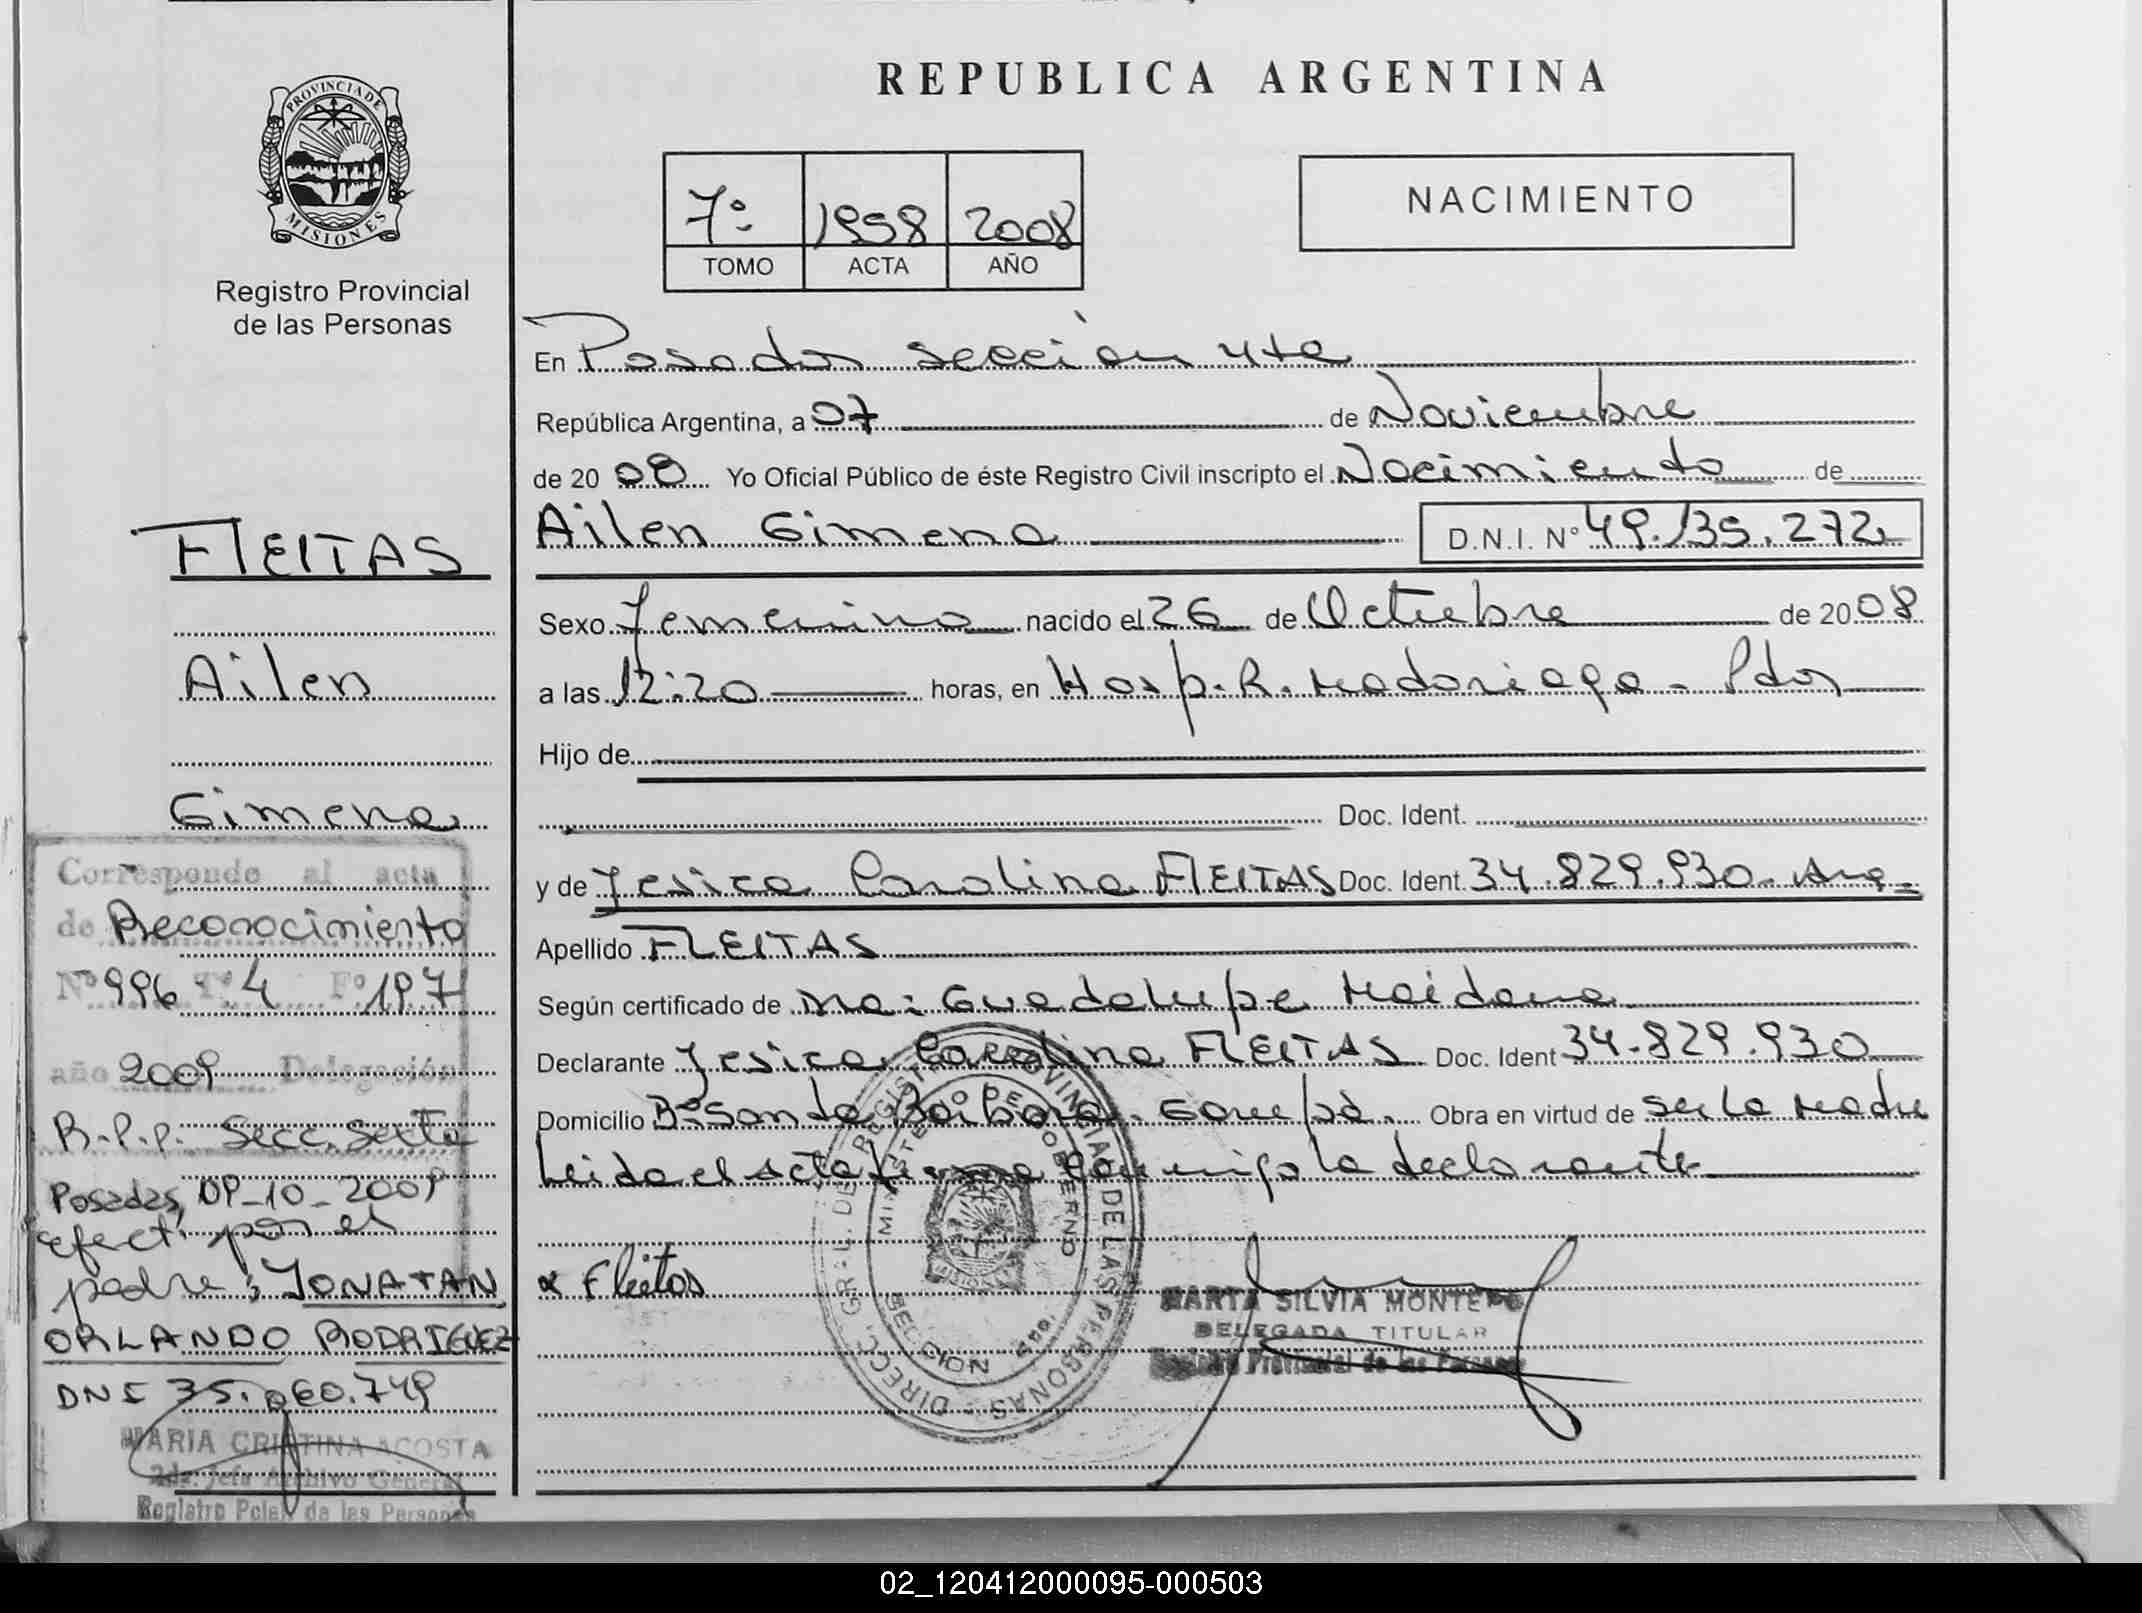 REPUBLICA ARGENTINA
PROVINCIA DE
MISIONES
Registro Provincial
de las Personas
7º 1958 2008
TOMO ACTA AÑO
NACIMIENTO
En Posadas sección 4ta
República Argentina, a 07 de Noviembre
de 20 08 Yo Oficial Público de éste Registro Civil inscripto el Nacimiento de
Ailen Gimena D.N.I. Nº 49.135.272
Sexo Femenino nacido el 26 de Octubre de 20 08
a las 12:20 horas, en Hosp. R. Madariaga - Pdas
Hijo de
Doc. Ident.
y de Yesica Carolina FLEITAS Doc. Ident. 34.829.930 - Arg.
Apellido FLEITAS
Según certificado de Ma: Guadalupe Maidana
Declarante Yesica Carolina FLEITAS Doc. Ident 34.829.930
Domicilio Bº Santa Barbara. Garupá. Obra en virtud de ser la madre
Leida el acta firma conmigo la declarante
x Fleitas
MARTA SILVIA MONTERO
DELEGADA TITULAR
Registro Provincial de las Personas
DIRECC. GRAL. DEL REGISTRO PROVINCIAL DE LAS PERSONAS
MINISTERIO DE GOBIERNO
MISIONES
FLEITAS
Ailen
Gimena
Corresponde al acta
de Reconocimiento
Nº 996 Tº 4 Fº 197
año 2009 Delegación
R.P.P. Secc. Sexta
Posadas, 09-10-2009
efect. por el
padre; JONATAN
ORLANDO RODRIGUEZ
DNI 35.060.749
MARIA CRISTINA ACOSTA
2da. Jefa Archivo General
Registro Pcial de las Personas
02_120412000095-000503